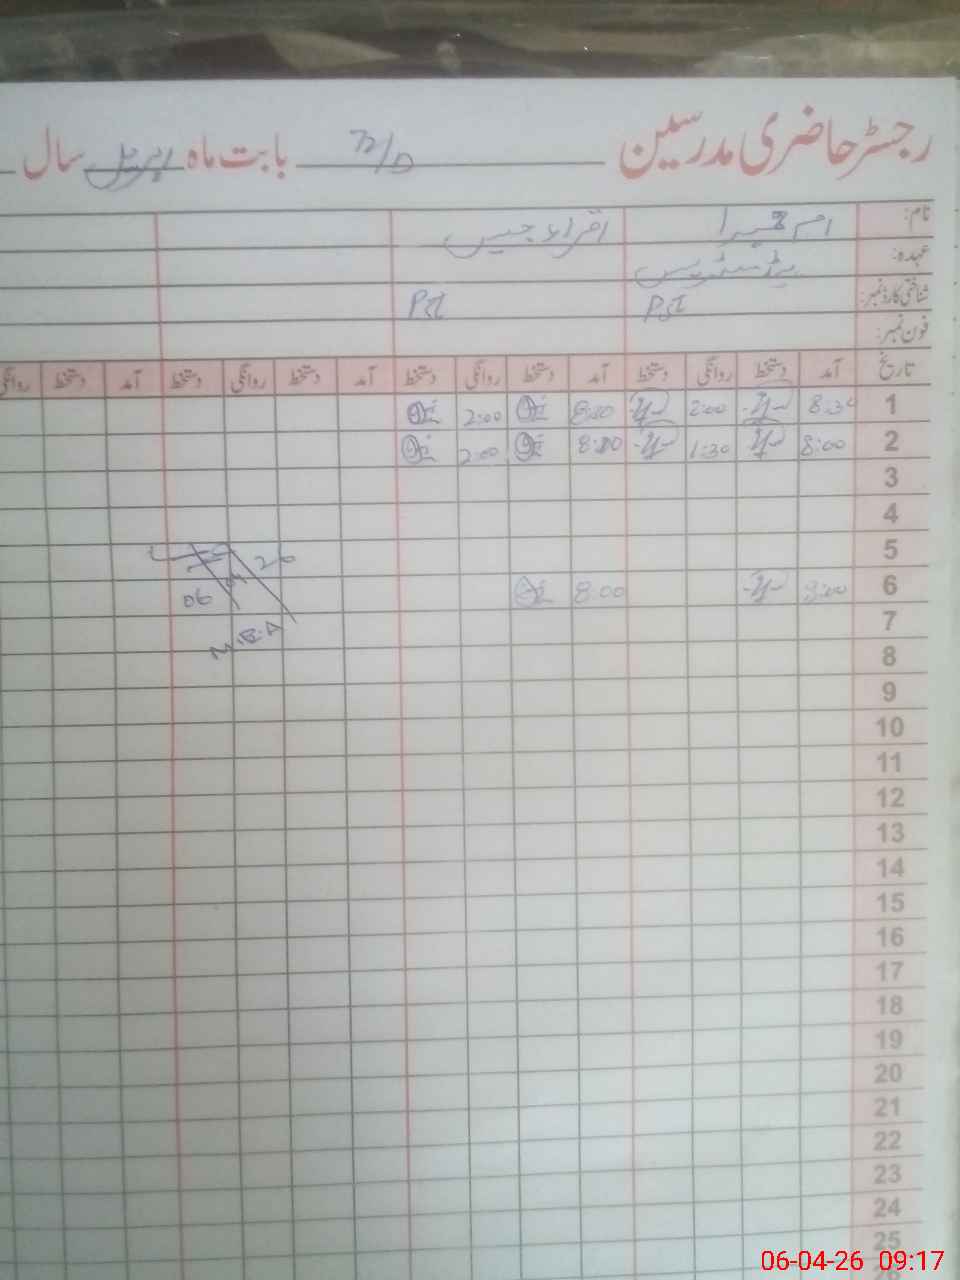 رجسٹر حاضری مدرسین بابت ماہ اپریل سال
نام: ام حمیرا اقراء جبیں
عہدہ: ہیڈ مسٹریس
شناختی کارڈ نمبر: PST PST
فون نمبر:
تاریخ آمد دستخط روانگی دستخط آمد دستخط روانگی دستخط آمد دستخط روانگی دستخط آمد دستخط روانگی
1 8:30 2:00 8:00 2:00
2 8:00 1:30 8:00 2:00
3
4
5
6 8:00 8:00
7
8
9
10
11
12
13
14
15
16
17
18
19
20
21
22
23
24
25
06-04-26 09:17